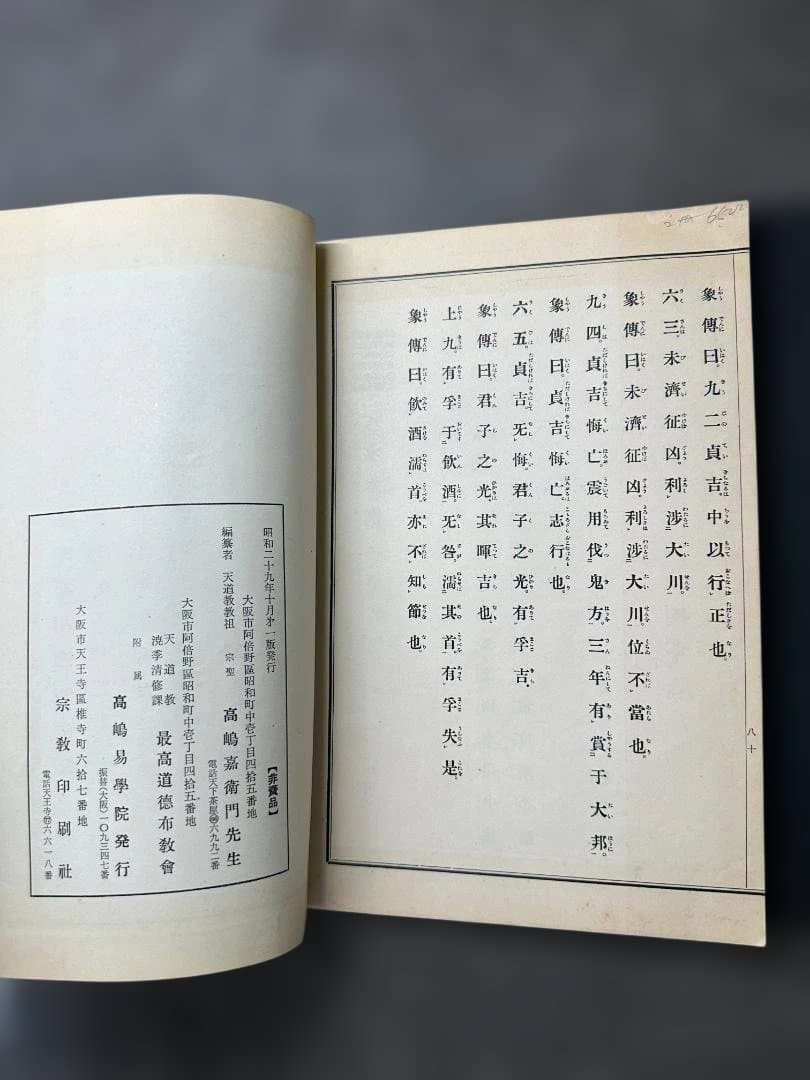 象傳曰。九二貞吉中以行正也。
六三。未濟征凶。利涉大川。
象傳曰。未濟征凶。利涉大川。位不當也。
九四。貞吉悔亡。震用伐鬼方。三年有賞于大邦。
象傳曰。貞吉悔亡。志行也。
六五。貞吉无悔。君子之光。有孚吉。
象傳曰。君子之光其暉吉也。
上九。有孚于飮酒。无咎。濡其首。有孚失是。
象傳曰飮酒濡首。亦不知節也。
八十
【非賣品】
昭和二十九年十月才一版發行
大阪市阿倍野區昭和町中壱丁目四拾五番地
編纂者 天道教教祖 宗聖 高嶋嘉衛門先生
電話天下茶屋㊿六九九二番
大阪市阿倍野區昭和町中壱丁目四拾五番地
天道教
澆季清修課 最高道德布敎會
附属 高嶋易學院發行
振替(大阪)一〇九三四七番
大阪市天王寺區椎寺町六拾七番地
宗敎印刷社
電話天王寺㊆六六一八番